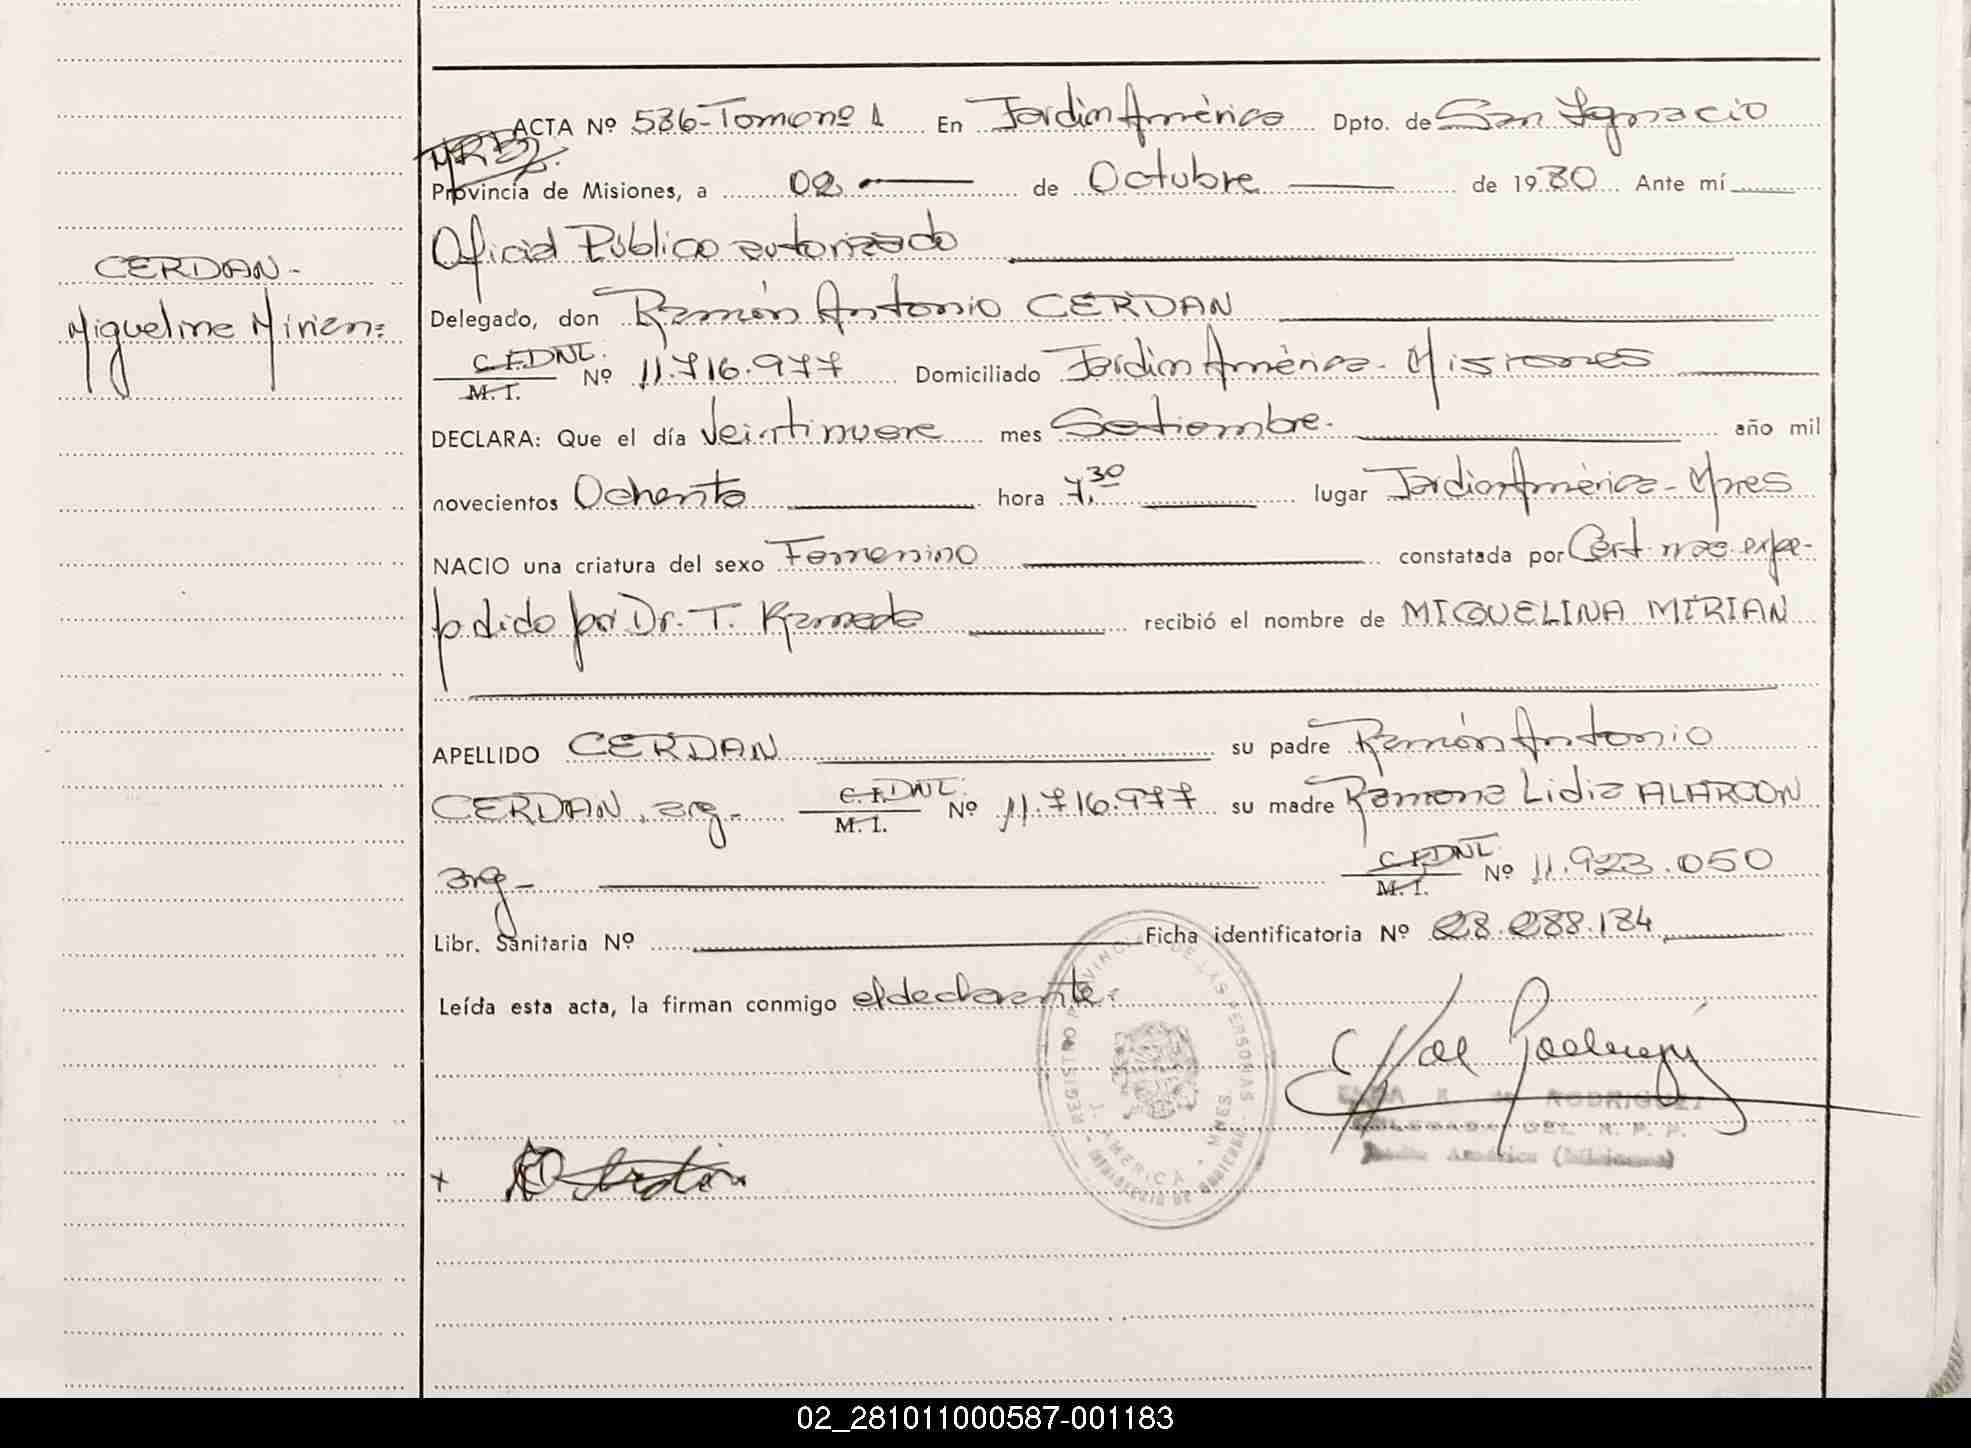 ACTA Nº 536-Tomo nº 1 En Jardin América Dpto. de San Ignacio
Provincia de Misiones, a 02 de Octubre de 1980 Ante mí
Oficial Público autorizado
CERDAN-
Miguelina Mirian=
Delegado, don Ramón Antonio CERDAN
C.I. DNI. M.I. Nº 11.716.977 Domiciliado Jardin América- Misiones
DECLARA: Que el día Veintinueve mes Setiembre. año mil
novecientos Ochenta hora 7,30 lugar Jardin América- Mnes
NACIO una criatura del sexo Femenino constatada por Cert. nac. expe-
dido por Dr. T. Kameda recibió el nombre de MIGUELINA MIRIAN
APELLIDO CERDAN su padre Ramón Antonio
CERDAN, arg- C.I. DNI. M.I. Nº 11.716.977 su madre Ramona Lidia ALARCON
arg- C.I. DNI. M.I. Nº 11.923.050
Libr. Sanitaria Nº Ficha identificatoria Nº 28.288.134
Leída esta acta, la firman conmigo el declarante.
REGISTRO PROVINCIAL DE LAS PERSONAS
J. AMERICA - MNES.
RODRIGUEZ
DELEGADA DEL R. P. P.
Jardín América (Misiones)
02_281011000587-001183